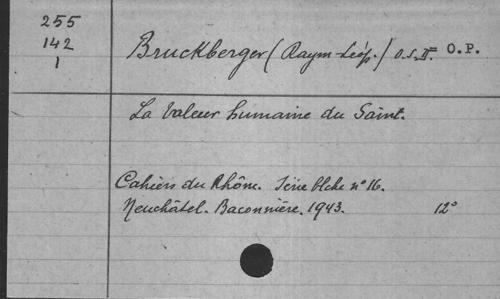 255
142
1
Bruckberger (Raym-Léop.) O.P.
La Valeur humaine du Saint.
Cahiers du Rhône. Série blche n° 16.
Neuchâtel. Baconnière. 1943. 12°